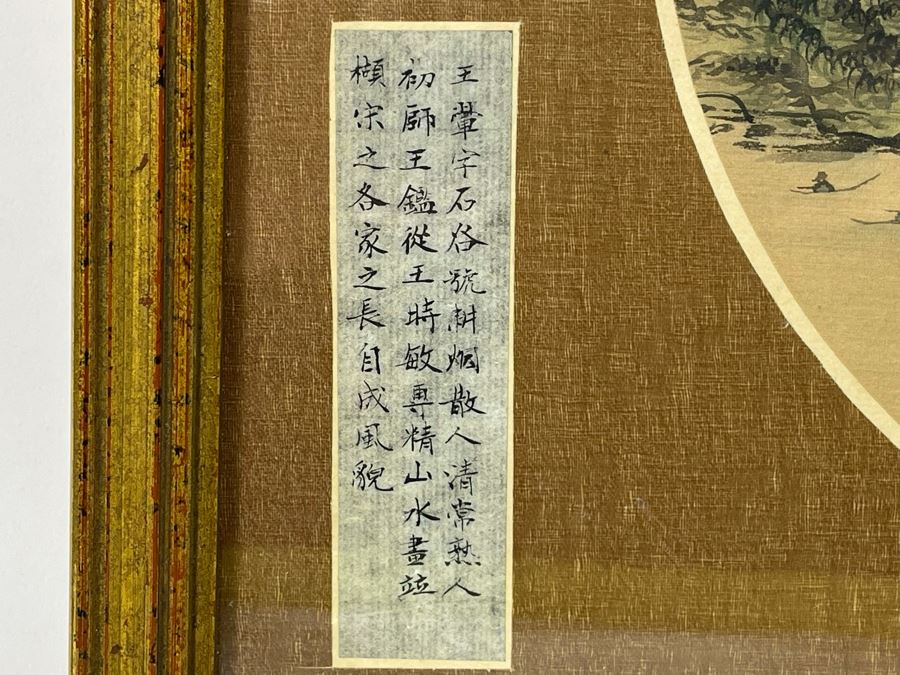 王翬字石谷號耕烟散人清常熟人
初師王鑑從王時敏專精山水畫並
擷宋之各家之長自成風貌